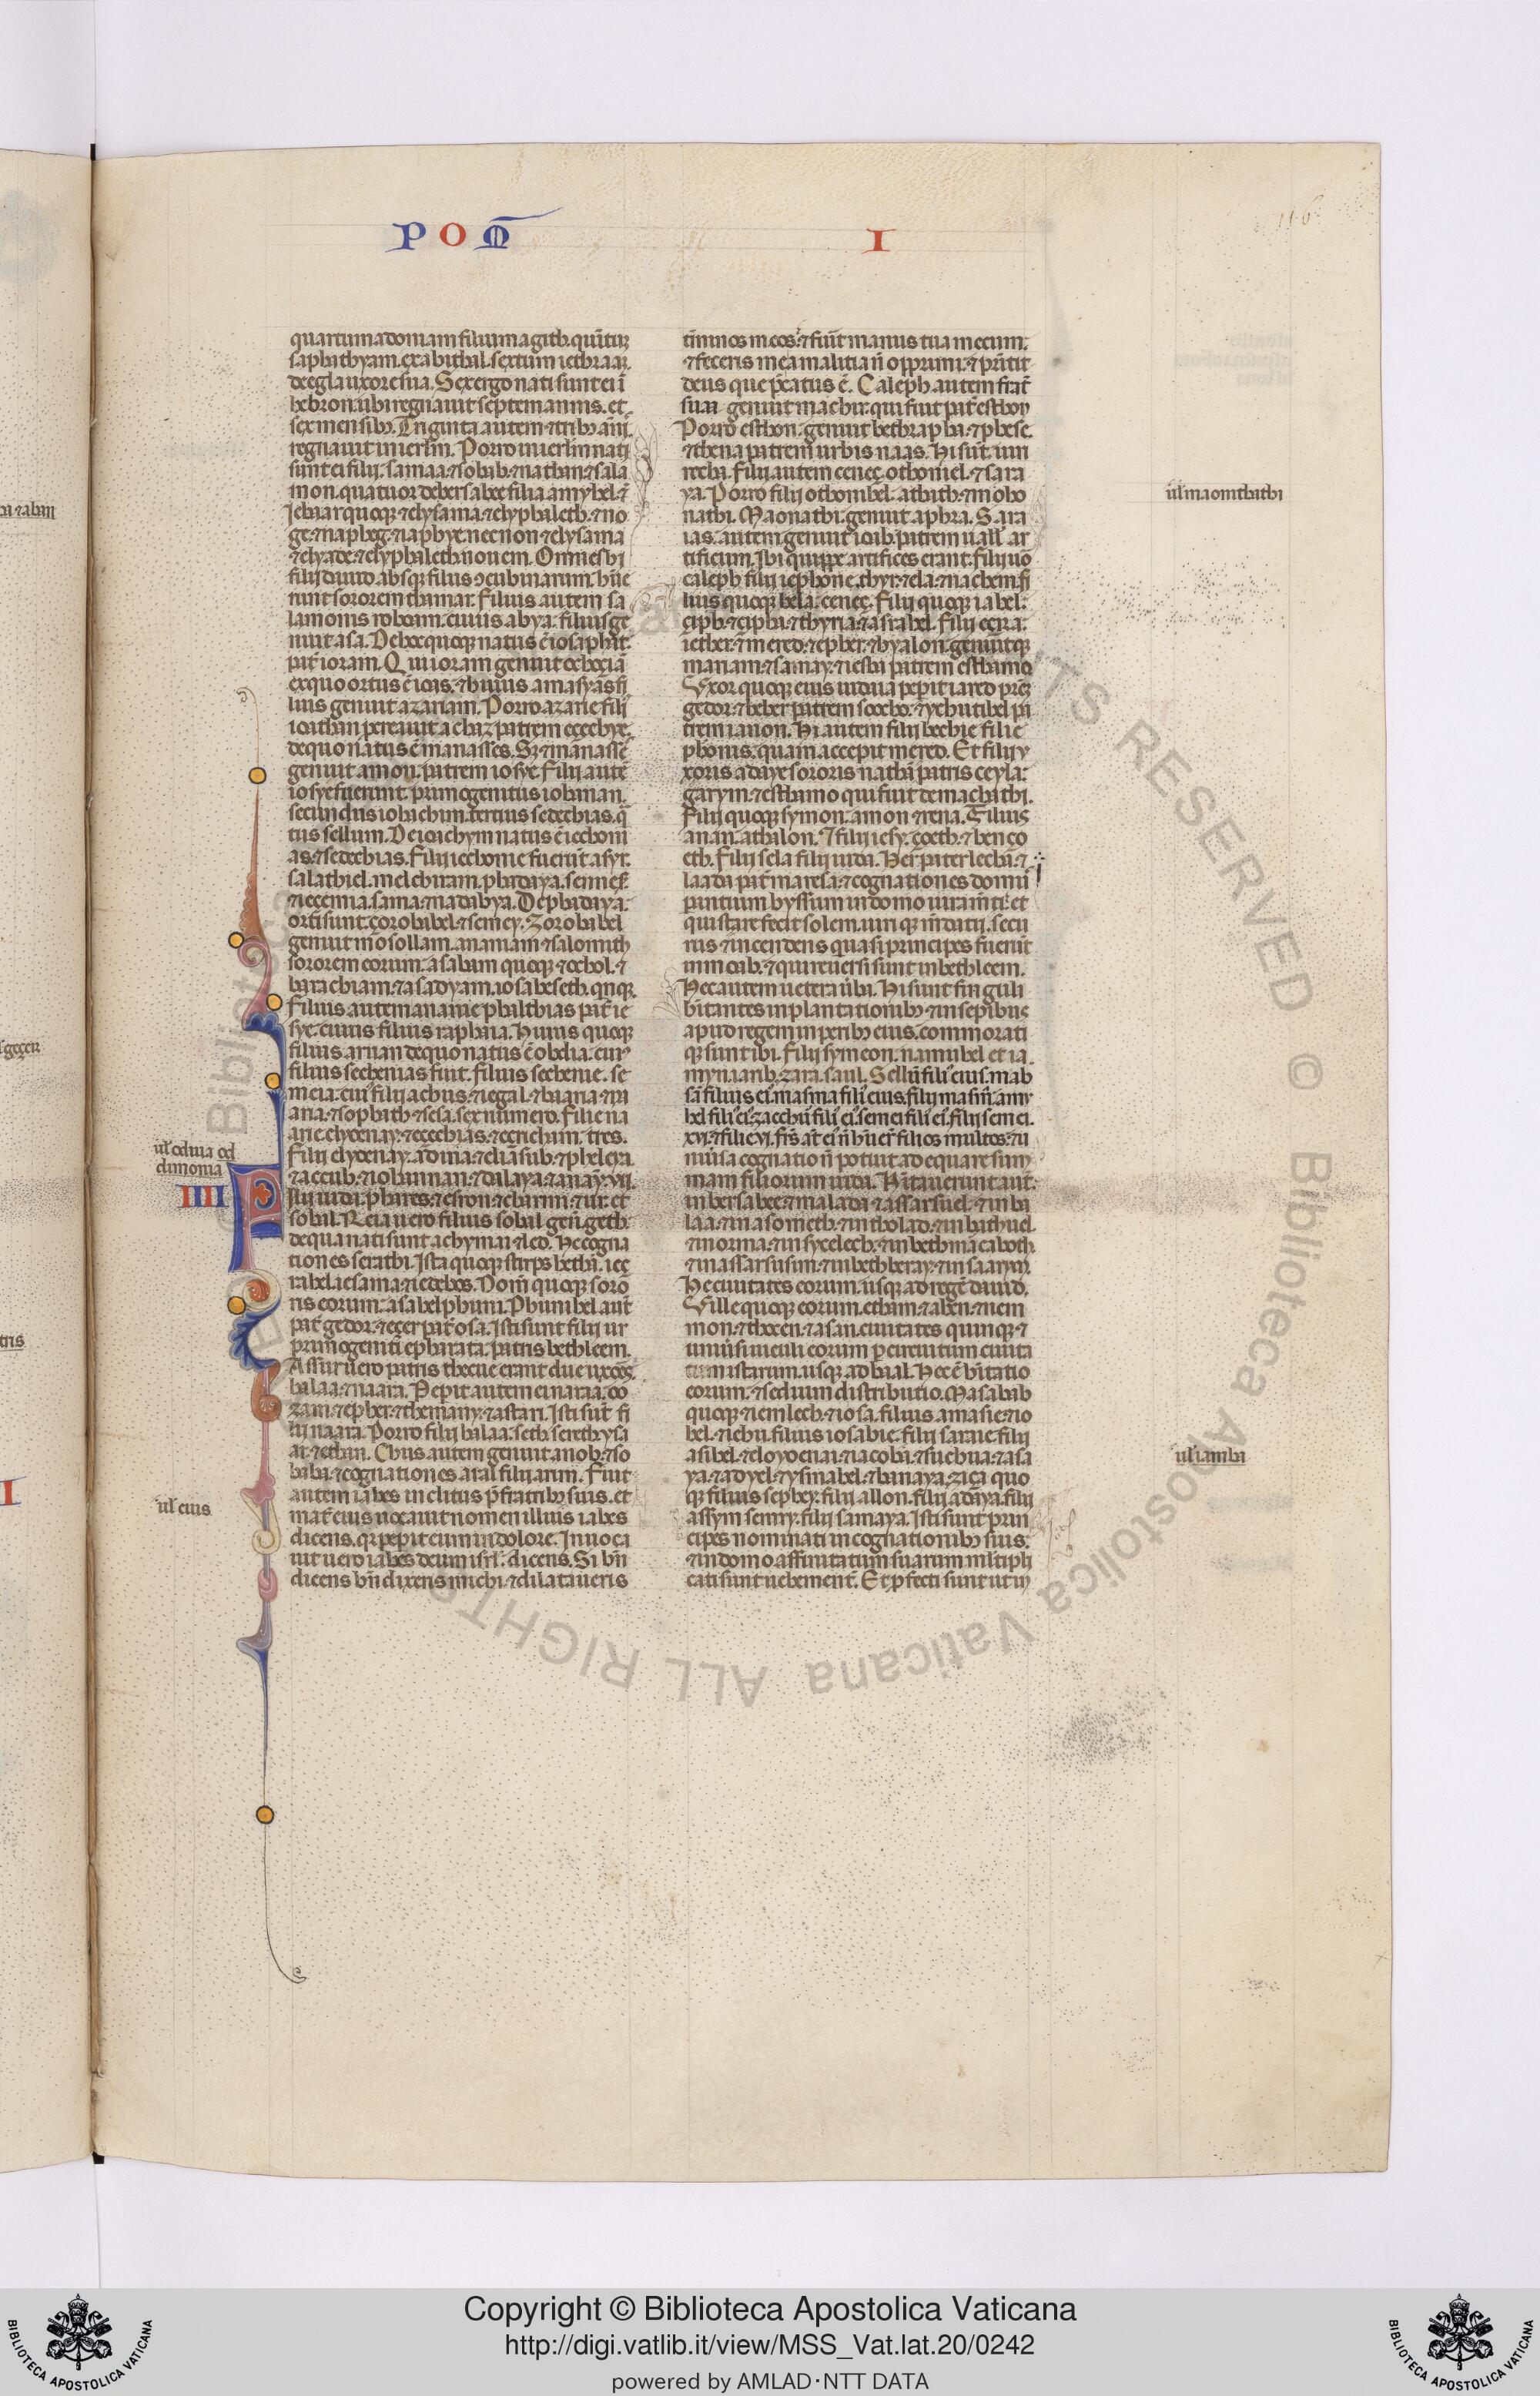 POM̄ I
116
quartum adoniam filium agith. quītū
saphathyam. ex abithal. sextum iethraar.
de egla uxore sua. Sex ergo nati sunt ei ī
hebron. ubi regnauit septem annis. et
sex mensibȝ. Triginta autem ⁊ tribȝ anī.
regnauit in ierlm̄. Porro in ierlm̄ nati
sunt ei filij. samaa. ⁊ sobab. ⁊ nathan. ⁊ sala
mon. quatuor de bersabee filia amyhel. ⁊
Jebaar quoqꝫ ⁊ elysama. ⁊ elyphaleth. ⁊ no
ge. ⁊ napheg. ⁊ naphye. necnon ⁊ elysama
⁊ elyade. ⁊ elyphaleth. nouem. Omnes hi
filij dauid absqꝫ filiis ɔcubinarum. hūe
runt sororem thamar. Filius autem sa
lamonis roboam. cuius abya. filius ge
nuit asa. De hoc quoqꝫ natus ē iosaphat.
pat̄ ioram. Qui ioram genuit ochoçiā
ex quo ortus ē ioas. ⁊ huius amasyas fi
lius genuit azariam. Porro azarie fili
ioathan pereauit achaz patrem eçechye.
de quo natus ē manasses. Sꝫ ⁊ manasse
genuit amon. patrem iosye. Filij autē
iosye fuerunt. primogenitus iohanan.
secundus iohachim. tertius sedechias. q̄r
tus sellum. De ioachym natus ē iechoni
as. ⁊ sedechias. Filij iechonie fuerūt asyr.
salathiel. melchiram. phadaya. sennes̄.
⁊ ieçemia. sama. ⁊ nadabya. De phadaya.
orti sunt. çorobabel. ⁊ semey. Zorobabel
genuit mosollam. ananiam ⁊ salomith
sororem eorum. asabam quoqꝫ ⁊ oehol. ⁊
barachiam. ⁊ asadyam. iosabeseth. qn̄qꝫ.
Filius autem ananie phalthias pat̄ ie
sye. cuius filius raphaia. Huius quoqꝫ
filius arnan de quo natus ē obdia. cui᷒
filius sechenias fuit. filius sechenie. se
meia. cui᷒ filij achus. ⁊ iegal. ⁊ baaria. ⁊ na
aria. ⁊ sophath. ⁊ sesa. sex numero. Filie na
arie. elyoenay. ⁊ eçechias. ⁊ eçrichim. tres.
Filij elyoenay. adina. ⁊ eliasub. ⁊ pheleya.
⁊ accub. ⁊ iohannan. ⁊ dalaya. ⁊ anay. vij.
Filij iuda. phares. ⁊ esron. ⁊ charmi. ⁊ ur. et
sobal. Reia uero filius sobal gen̄. geth.
de qua nati sunt achymai. ⁊ led. He cogna
tiones serathi. Ista quoqꝫ stirps hethā. ieç
rahel. iesama. ⁊ iedebos. Nom̄ quoqꝫ soro
ris eorum. asabelphuni. Phunihel aut̄
pat̄ gedor. ⁊ eçer pat̄ osa. Isti sunt filij ur
primogeniti ephrata. patris bethleem.
Assur uero patris thecue erant due uxoēs.
halaa. ⁊ naara. Peperit autem ei naraa. oo
zam. ⁊ epher. ⁊ themany. ⁊ astari. Isti sūt fi
lij naara. Porro filij halaa. seth. sereth. ysa
ar. ⁊ ethan. Chus autem genuit anob. ⁊ so
baba. ⁊ cognationes aral filij arim. Fuit
autem iabes inclitus p̄ fratribȝ suis. et
mat̄ eius uocauit nomen illius iabes
dicens. qr peperit eum in dolore. Inuoca
uit uero iabes deum isrl̄. dicens. Si bn̄
dicens bn̄dixeris michi. ⁊ dilataueris
t̄minos meos. ⁊ fuit̄ manus tua mecum.
⁊ feceris me a malitia n̄ opprimi. ⁊ pr̄stitit
deus que p̄catus ē. Caleph autem frat̄
sua genuit machir. qui fuit pat̄ esthon
Porro esthon. genuit bethrapha. ⁊ phese.
⁊ thena patrem urbis naas. Hi sūt uiri
recha. Filij autem ceneç. othoniel. ⁊ sara
ya. Porro filij othonihel. athath. ⁊ mono
nathi. Maonathi. genuit aphra. Sara
ias. autem genuit ioab. patrem uall᷒ ar
tificum. Ibi quippe artifices erant. Filij uō
caleph filij iephone. thyr. ⁊ ela. ⁊ nachem. fi
lius quoqꝫ hela. ceneç. Filij quoqꝫ iahel.
çiph. ⁊ çipha. ⁊ thyria. ⁊ asrahel. Filij eçra.
iether. ⁊ mered. ⁊ epher. ⁊ hyalon. genuitqꝫ
mariam. ⁊ samay. ⁊ iesba patrem esthamo
Vxor quoqꝫ eius iudaia peperit iared pr̄eꝫ
gedor. ⁊ heber patrem socho. ⁊ yehutihel pa
trem ianon. Hi autem filij bechie filie
pharaonis. quam accepit mered. Et filij v
xoris adaye sororis nathā patris ceyla.
garym. ⁊ esthamo qui fuit de machathi.
Filij quoqꝫ symon. amon ⁊ rena. Filius
anan. athalon. ⁊ filij iesy. çoeth. ⁊ benço
eth. Filij sela filij iuda. Her pater lecha. ⁊
laada pat̄ maresa. ⁊ cognationes domus
pantium byssum in domo iuram̄ti. et
qui stare fecit solem. uiri qꝫ mendacij. secu
rus ⁊ incendens quasi principes fuerūt
in moab. ⁊ qui reuersi sunt in bethleem.
Hec autem uetera ūba. Hi sunt figuli
hītantes in plantationibȝ ⁊ in sepibus
apud regem in peribȝ eius. commorati
qꝫ sunt ibi. Filij symeon. namuhel et ia
myn. iarib. zara. saul. Sellū fili᷒ eius. mab
san filius ei᷒. masma fili᷒ eius. filij masma. amu
hel fili᷒ ei᷒. zacchur fili᷒ ei᷒. semei fili᷒ ei᷒. filij semei.
xvi. ⁊ filie vi. frs̄ at̄ ei᷒ n̄ hūer̄t filios multos. ⁊ u
niūsa cognatio n̄ potuit adequare sum
mam filiorum iuda. Hītauerunt aut̄
in bersabee. ⁊ malada. ⁊ assarsuel. ⁊ in ba
laa. ⁊ in asometh. ⁊ in tholad. ⁊ in bathuel.
⁊ in orma. ⁊ in sycelech. ⁊ in bethmacaboth
⁊ in assarsusim. ⁊ in bethberay. ⁊ in saarym.
He ciuitates eorum. usqꝫ ad regē dauid.
Ville quoqꝫ eorum. etham. ⁊ aben. ⁊ rem
mon. ⁊ thocen. ⁊ asan. ciuitates quinqꝫ. ⁊
uniūsi uiculi eorum p circuitum ciuita
tum istarum. usqꝫ ad baal. Hec ē hītatio
eorum. ⁊ sedium distributio. Masabab
quoqꝫ. ⁊ iemlech. ⁊ iosa. filius amasie. ⁊ io
hel. ⁊ iehu. filius iosabie. filij saraie. filij
asihel. ⁊ elyoenai. ⁊ iacoba. ⁊ suchua. ⁊ asa
ya. ⁊ adyel. ⁊ ysmahel. ⁊ banaya. ziça quo
qꝫ filius sephey. filij allon. filij adaya. filij
assym semry. filij samaya. Isti sunt prin
cipes nominati in cognationibȝ suis.
⁊ in domo affinitatum suarum ml̄tipli
cati sunt uehement̄. Et pfecti sunt ut in
ul̄ maonithathi
ul̄ odiua od
diimonia
IIII
ul̄ eius
ul̄ iamba
Copyright © Biblioteca Apostolica Vaticana
http://digi.vatlib.it/view/MSS_Vat.lat.20/0242
powered by AMLAD·NTT DATA
BIBLIOTECA APOSTOLICA VATICANA
BIBLIOTECA APOSTOLICA VATICANA
© Biblioteca Apostolica Vaticana ALL RIGHTS RESERVED